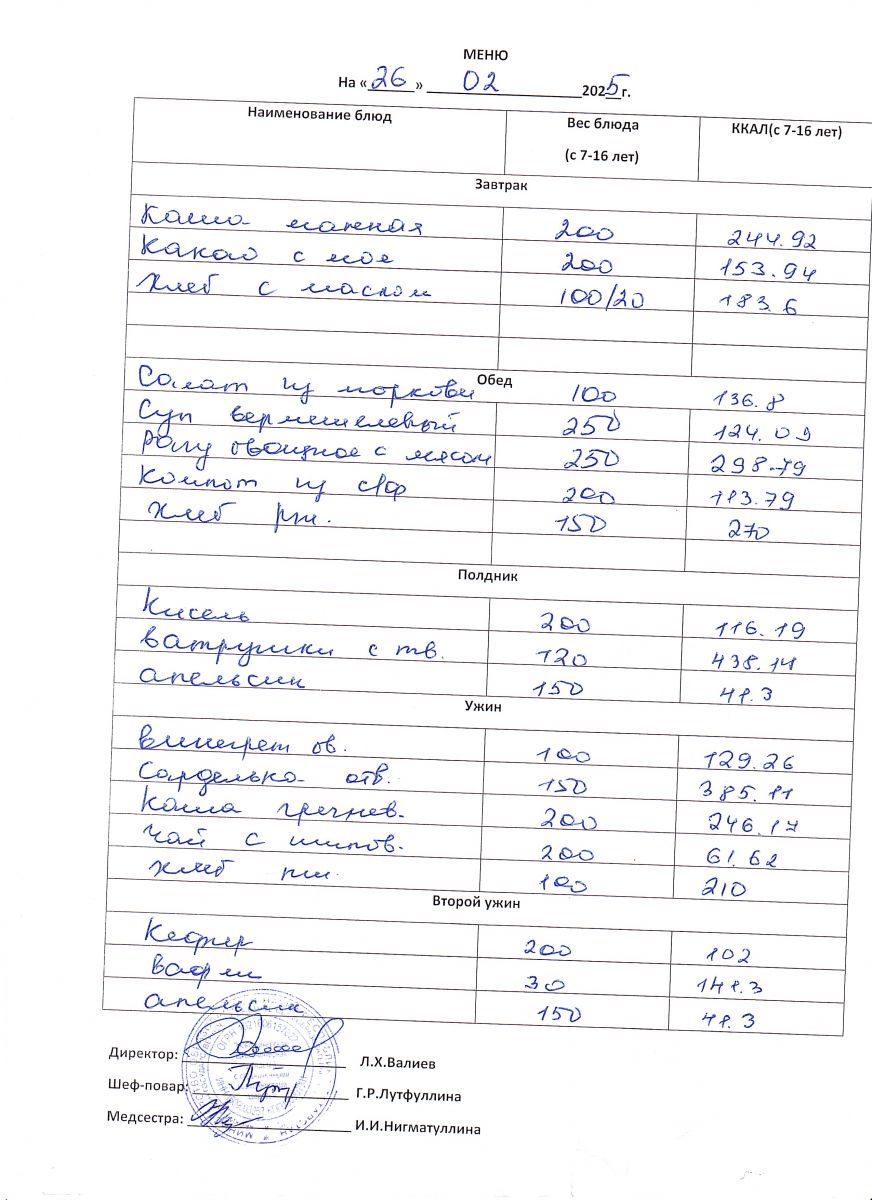 МЕНЮ
На « 26 » 02 2025 г.
Наименование блюд Вес блюда (с 7-16 лет) ККАЛ(с 7-16 лет)
Завтрак
Каша манная 200 244.92
Какао с мол 200 153.94
Хлеб с маслом 100/20 183.6
Обед
Салат из моркови 100 136.8
Суп вермишелевый 250 124.09
Рагу овощное с мясом 250 298.79
Компот из с/ф 200 113.79
Хлеб рж. 150 270
Полдник
Кисель 200 116.19
ватрушки с тв. 120 438.14
апельсин 150 48.3
Ужин
Винегрет ов. 100 129.26
Сарделька отв. 150 385.11
Каша гречнев. 200 246.17
Чай с шипов. 200 61.62
Хлеб пш. 100 210
Второй ужин
Кефир 200 102
вафли 30 148.3
апельсин 150 48.3
Директор: Л.Х.Валиев
Шеф-повар: Г.Р.Лутфуллина
Медсестра: И.И.Нигматуллина